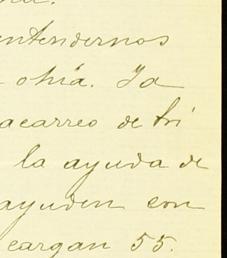 entendernos
ohía. Ya
acarreo de tri
la ayuda de
ayuden con
cargan 55.